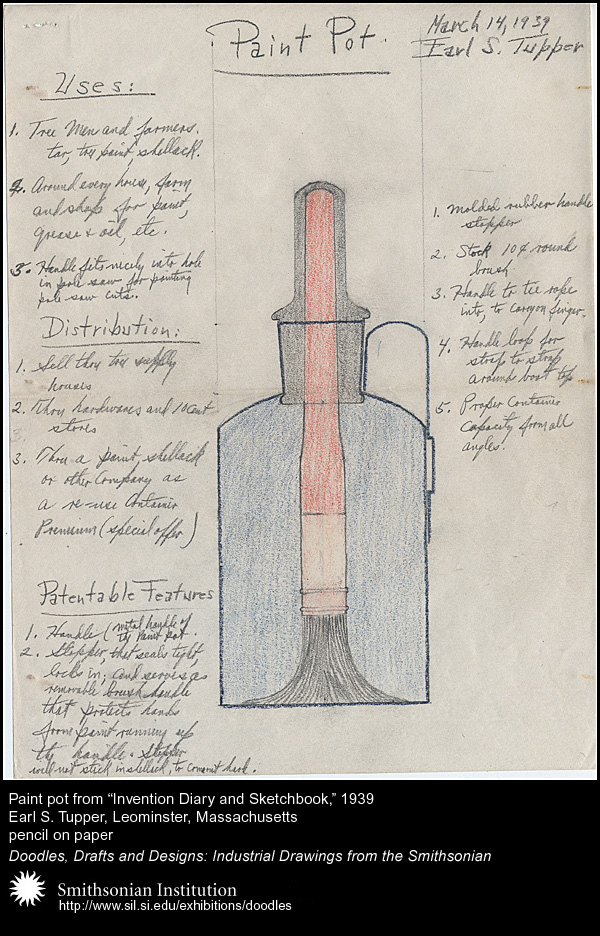 Paint Pot.
March 14, 1939
Earl S. Tupper
Uses:
1. Tree Men and farmers.
tar, tree paint, shellack.
2. Around every house, farm
and shop for paint,
grease & oil, etc.
3. Handle fits nicely into hole
in pole saw for painting
pole-saw cuts.
Distribution:
1. Sell thru tree supply
houses
2. Thru hardwares and 10 cent
stores
3.
3. Thru a paint, shellack
or other Company as
a re-use Container
Premium (special offer)
Patentable Features
1. Handle (metal handle of
the Paint pot.
2. Stopper, that seals tight,
locks in; and serves as
removable brush handle
that protects hands
from paint running up
the handle. Stopper
will not stick in shellack, to
1. Molded rubber handle
stopper
2. Stock 10¢ round
brush
3. Handle to tie rope
into, to carry on finger.
4. Handle loop for
strap to strap
around boot top
5. Proper Container
capacity from all
angles.
Paint pot from “Invention Diary and Sketchbook,” 1939
Earl S. Tupper, Leominster, Massachusetts
pencil on paper
Doodles, Drafts and Designs: Industrial Drawings from the Smithsonian
Smithsonian Institution
http://www.sil.si.edu/exhibitions/doodles